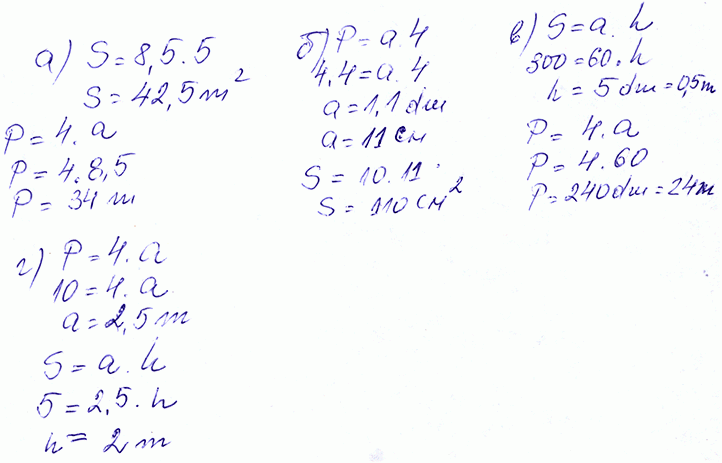 а) S = 8,5.5
S = 42,5 m²
P = 4.a
P = 4.8,5
P = 34 m
б) P = a.4
4,4 = a.4
a = 1,1 dm
a = 11 см
S = 10.11
S = 110 см²
в) S = a.h
300 = 60.h
h = 5 dm = 0,5 m
P = 4.a
P = 4.60
P = 240 dm = 24 m
г) P = 4.a
10 = 4.a
a = 2,5 m
S = a.h
5 = 2,5.h
h = 2 m